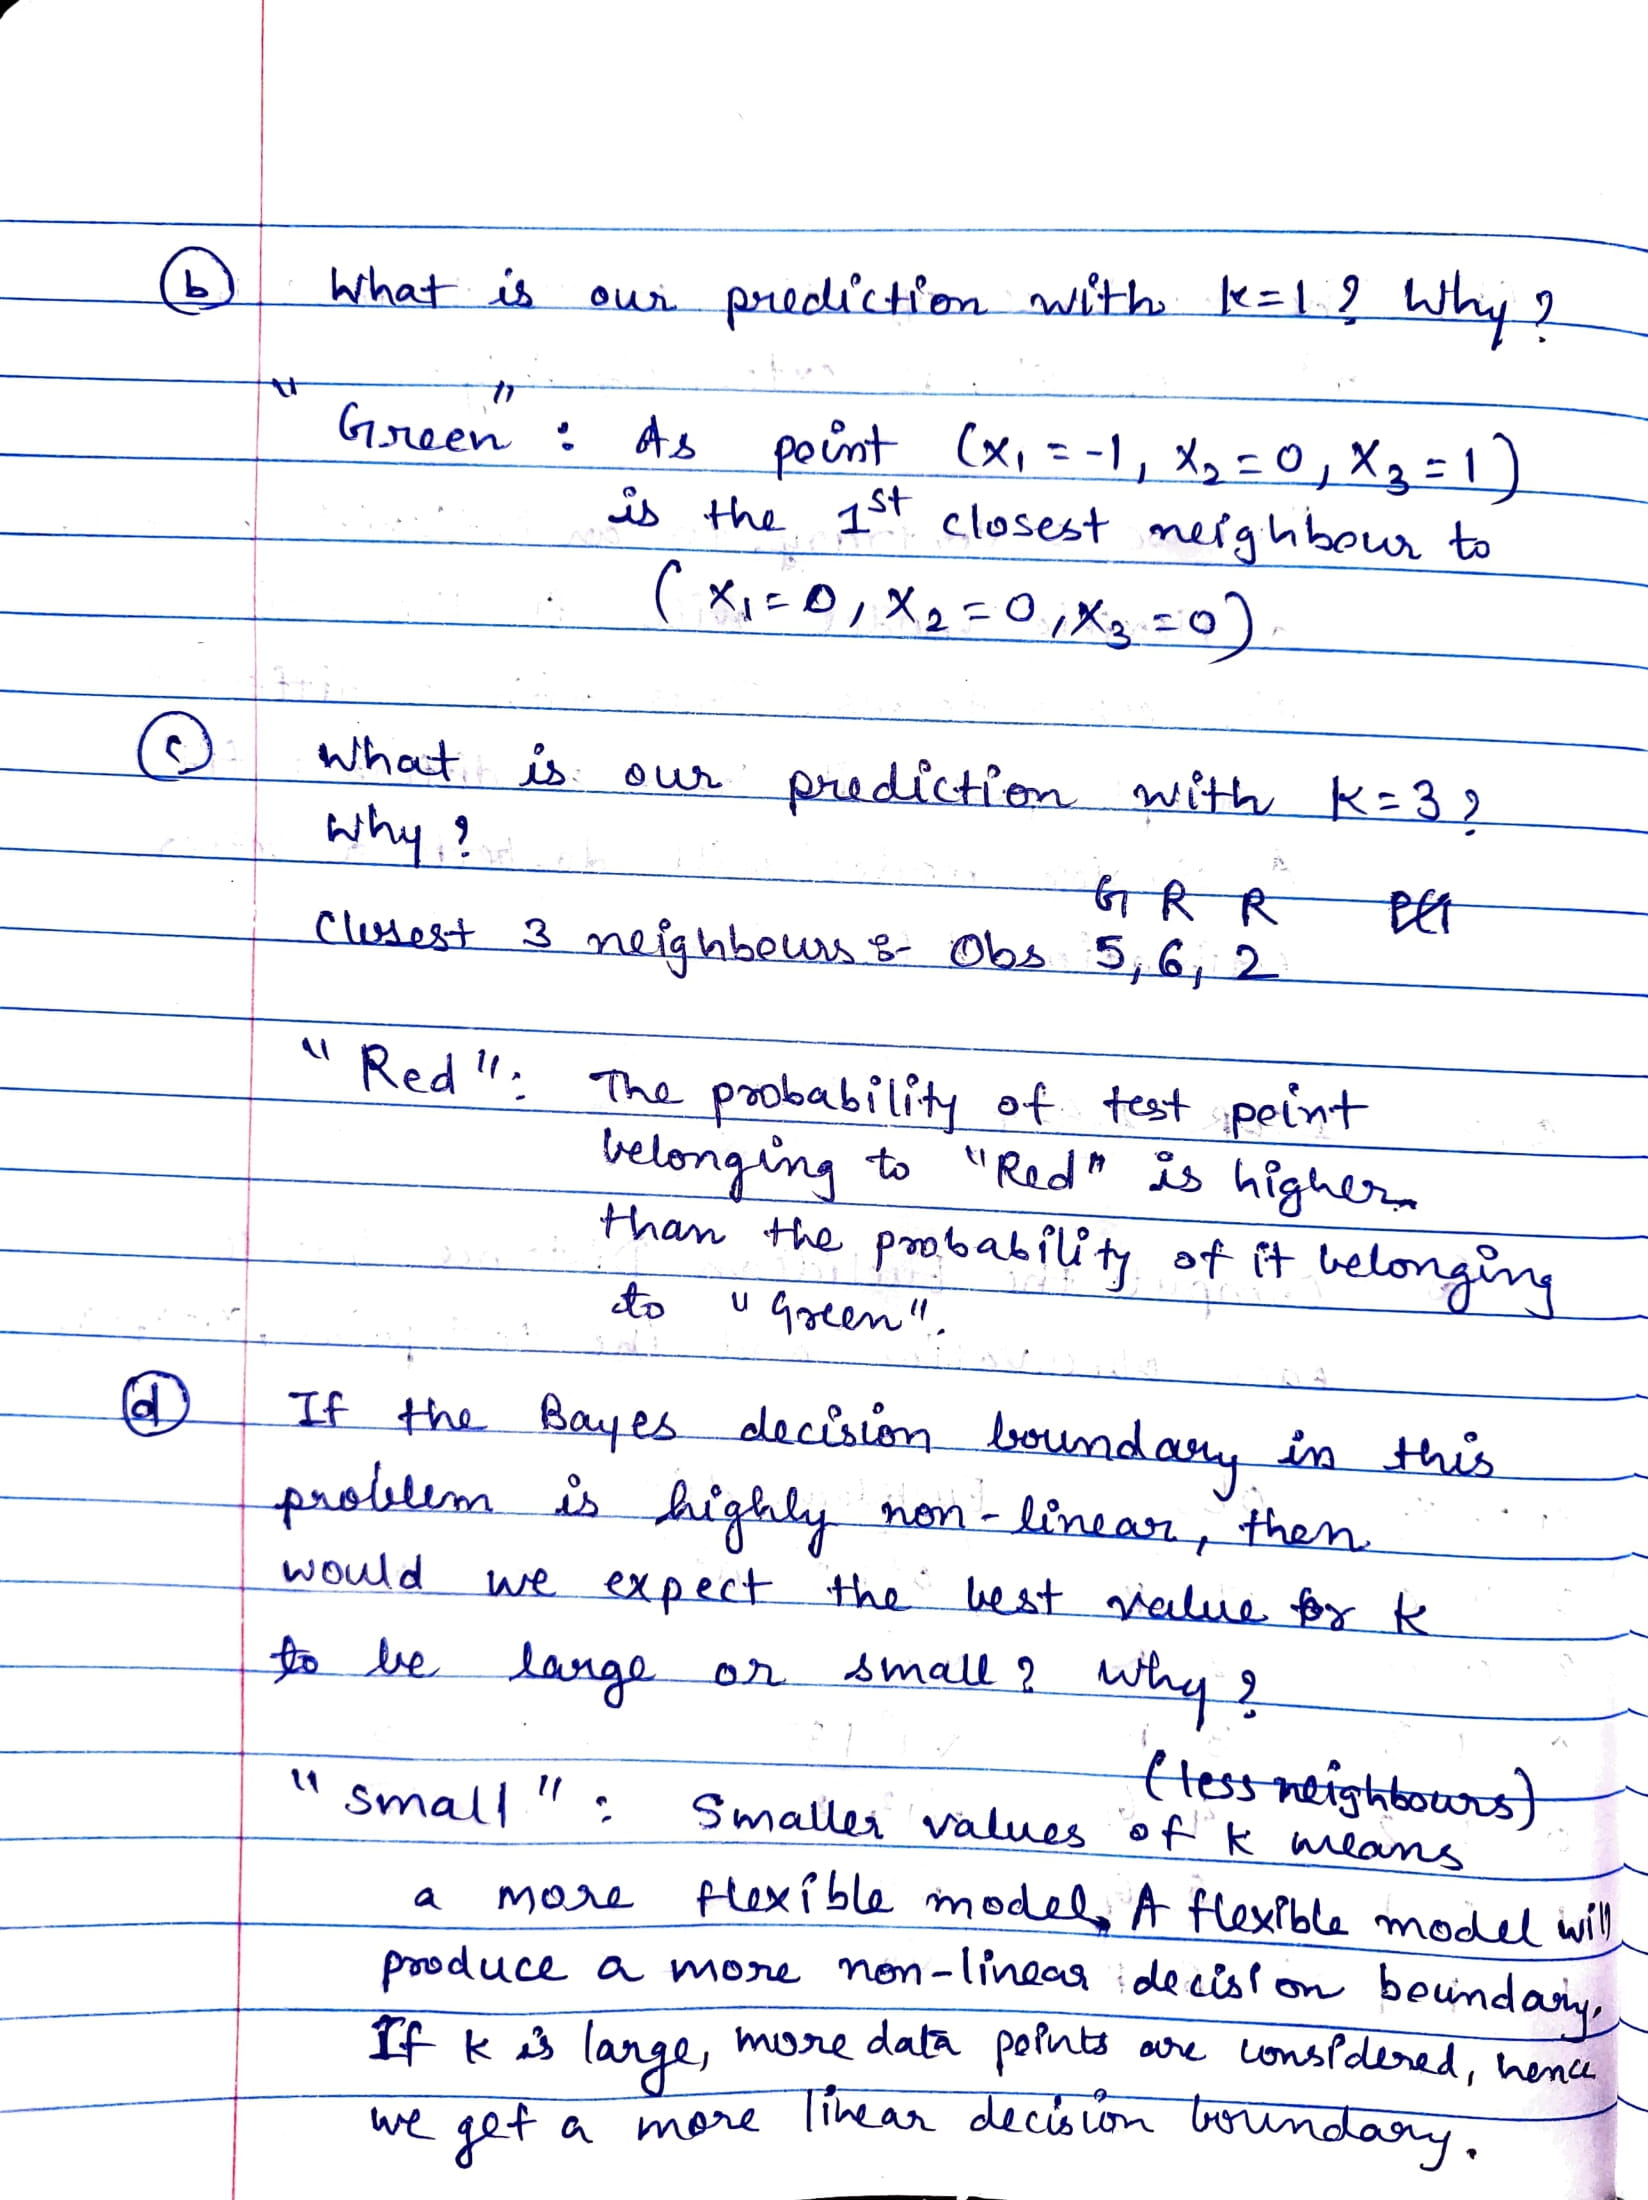 (b) What is our prediction with k=1? Why?
"Green" : As point (X₁ = -1, X₂ = 0, X₃ = 1)
is the 1st closest neighbour to
(X₁ = 0, X₂ = 0, X₃ = 0)
(c) What is our prediction with K=3?
Why?
G R R
Closest 3 neighbours :- Obs 5, 6, 2
"Red": The probability of test point
belonging to "Red" is higher
than the probability of it belonging
to "Green".
(d) If the Bayes decision boundary in this
problem is highly non-linear, then
would we expect the best value for k
to be large or small? Why?
(less neighbours)
"small" : Smaller values of k means
a more flexible model. A flexible model will
produce a more non-linear decision boundary.
If k is large, more data points are considered, hence
we get a more linear decision boundary.